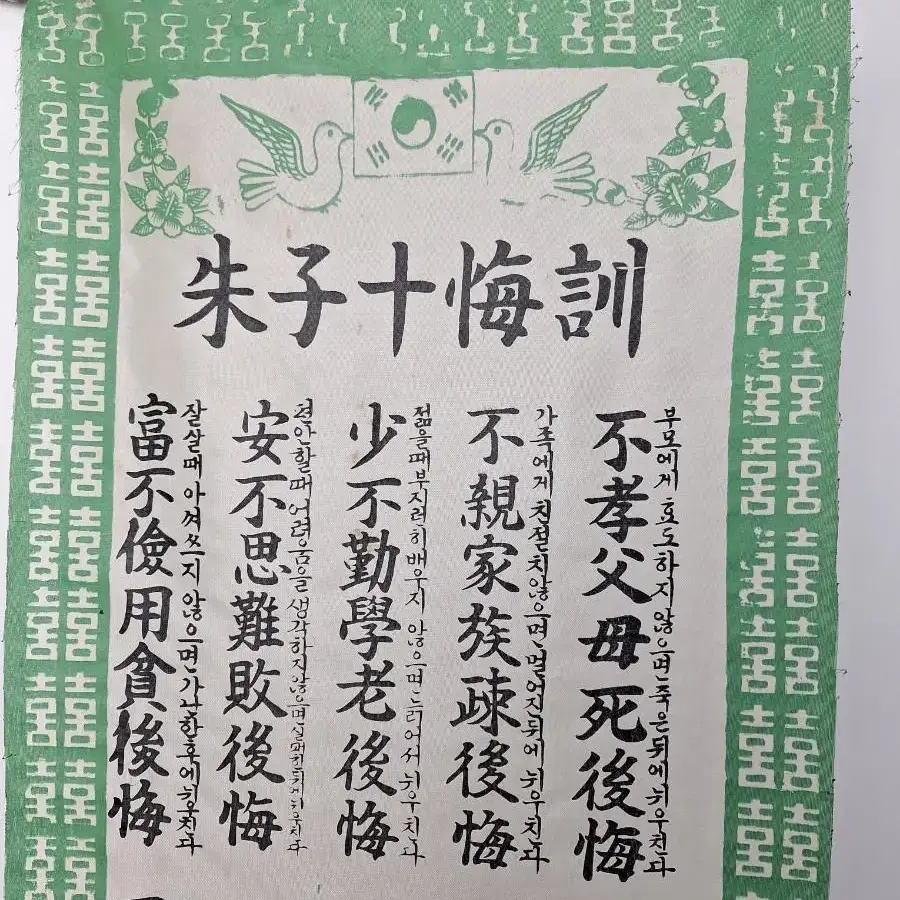 朱子十悔訓
부모에게 효도하지 않으면 죽은뒤에 뉘우친다
不孝父母死後悔
가족에게 친절치않으면 멀어진뒤에 뉘우친다
不親家族疎後悔
젊을때부지러히배우지 않으면 늙어서 뉘우친다
少不勤學老後悔
편안할때 어려움을 생각하지않으면 실패한뒤에뉘우친다
安不思難敗後悔
잘살때 아껴쓰지 않으면 가난한후에 뉘우친다
富不儉用貧後悔